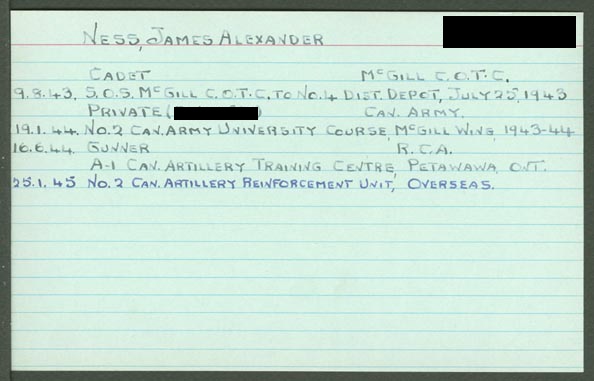 NESS, JAMES ALEXANDER
CADET McGILL C.O.T.C.
9.8.43. S.O.S. McGILL C.O.T.C. TO No.4 DIST. DEPOT, JULY 25, 1943
PRIVATE ( ) CAN. ARMY.
19.1.44. No.2 CAN. ARMY UNIVERSITY COURSE, McGILL WING, 1943-44
16.6.44. GUNNER R.C.A.
A-1 CAN. ARTILLERY TRAINING CENTRE, PETAWAWA, ONT.
25.1.45 No.2 CAN. ARTILLERY REINFORCEMENT UNIT, OVERSEAS.